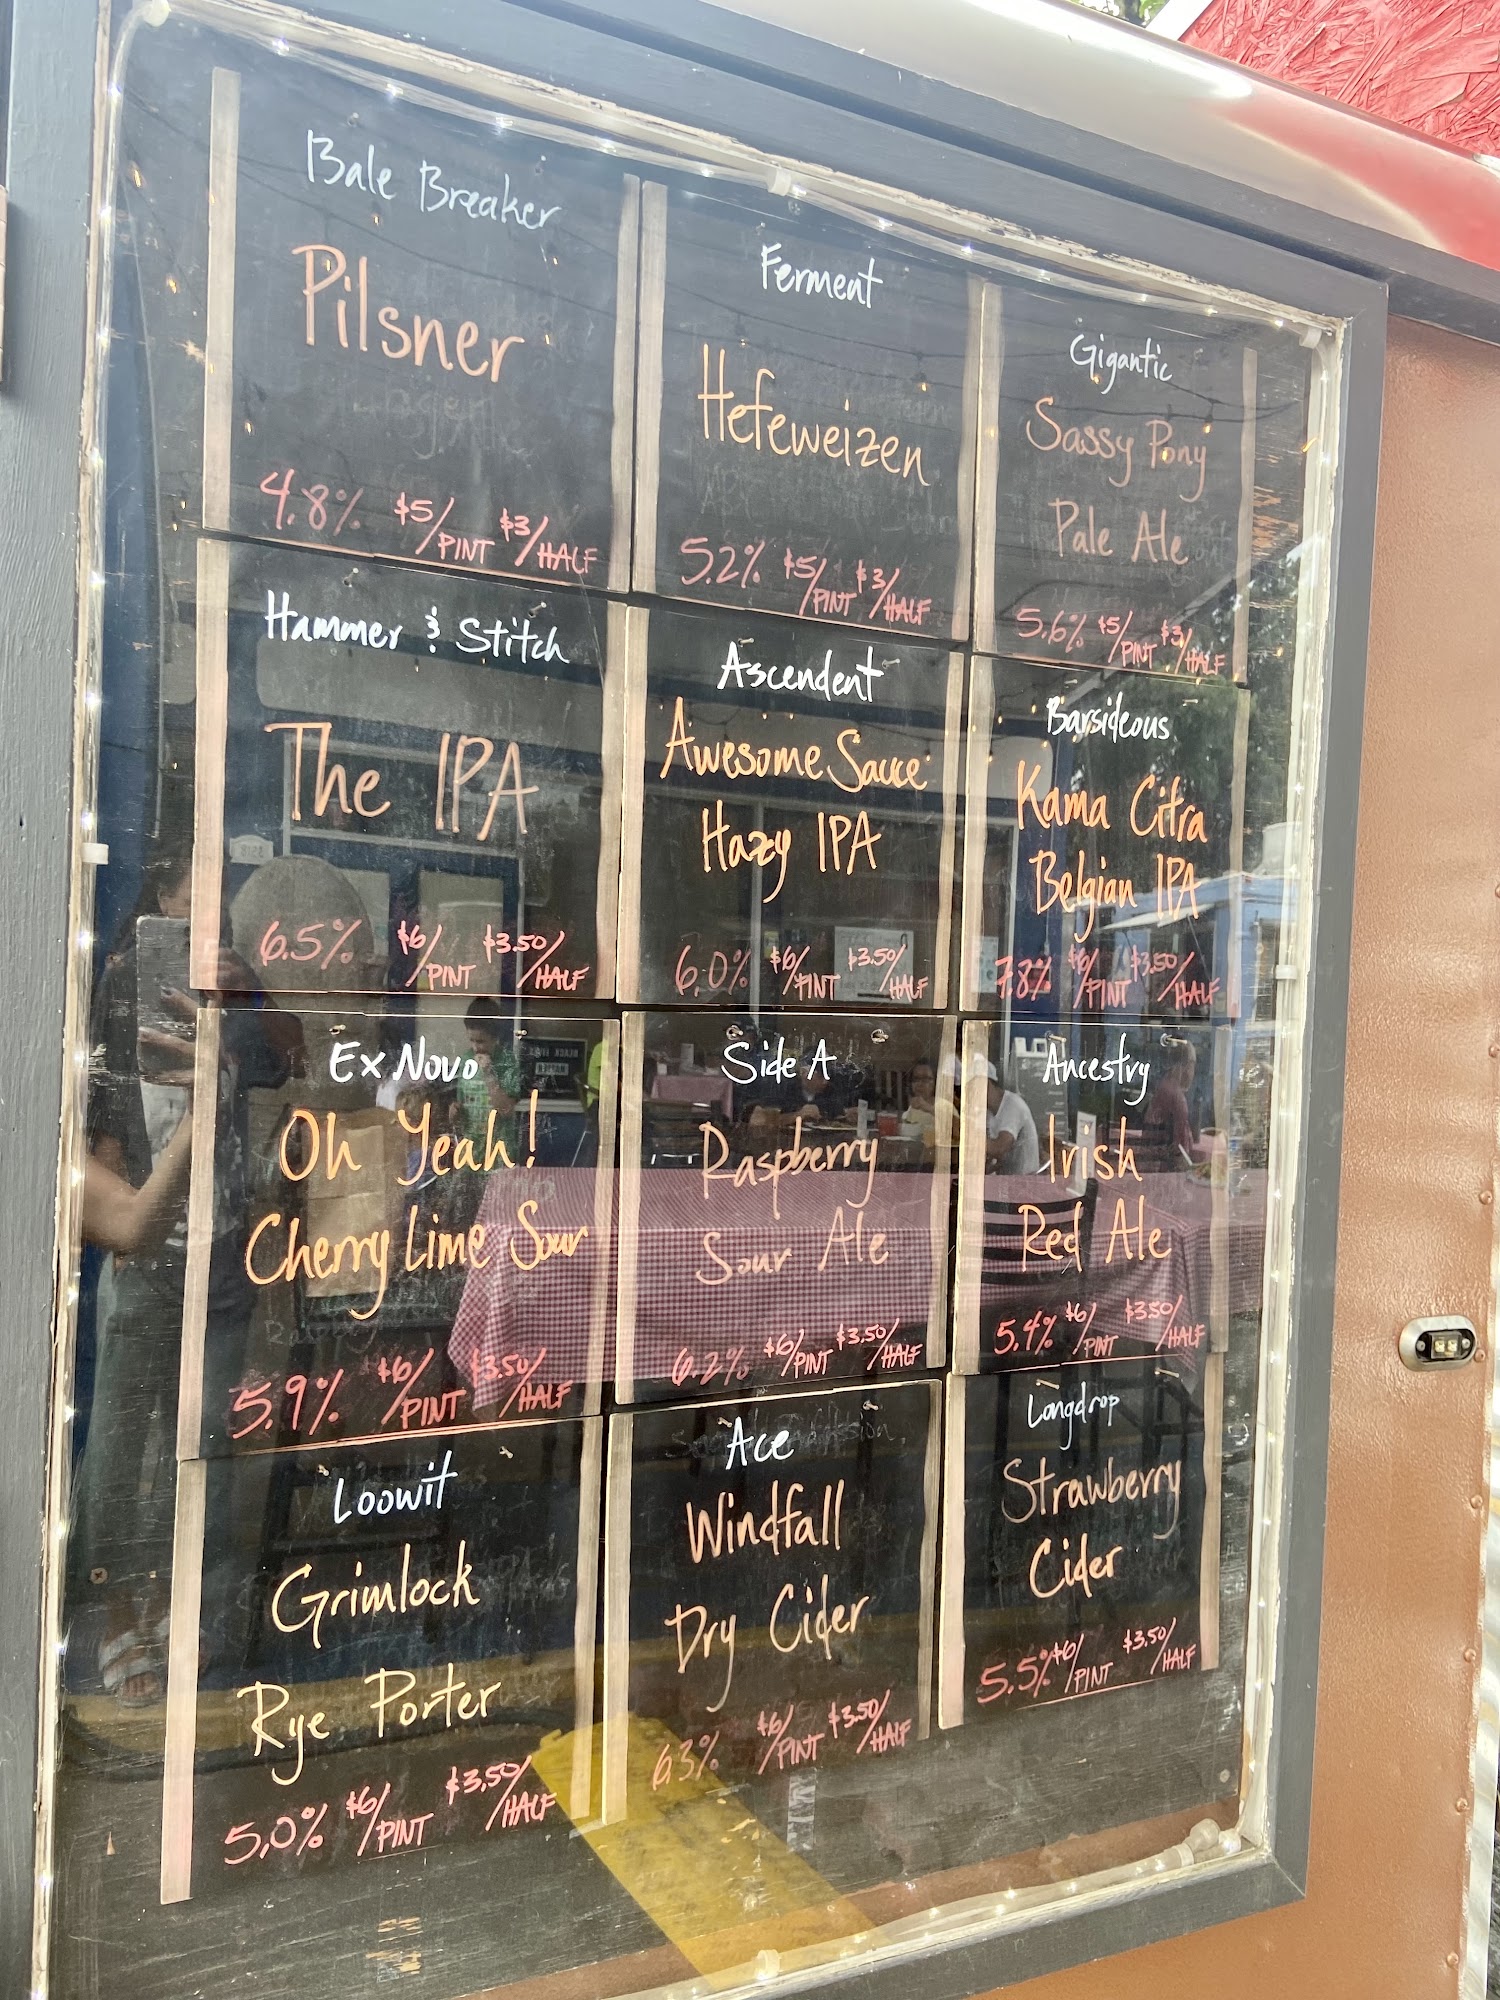 Bale Breaker
Pilsner
4.8% $5/PINT $3/HALF
Ferment
Hefeweizen
5.2% $5/PINT $3/HALF
Gigantic
Sassy Pony
Pale Ale
5.6% $5/PINT $3/HALF
Hammer & Stitch
The IPA
6.5% $6/PINT $3.50/HALF
Ascendent
Awesome Sauce
Hazy IPA
6.0% $6/PINT $3.50/HALF
Barsideous
Kama Citra
Belgian IPA
7.8% $6/PINT $3.50/HALF
Ex Novo
Oh Yeah!
Cherry Lime Sour
5.9% $6/PINT $3.50/HALF
Side A
Raspberry
Sour Ale
6.2% $6/PINT $3.50/HALF
Ancestry
Irish
Red Ale
5.4% $6/PINT $3.50/HALF
Loowit
Grimlock
Rye Porter
5.0% $6/PINT $3.50/HALF
Ace
Windfall
Dry Cider
6.3% $6/PINT $3.50/HALF
Longdrop
Strawberry
Cider
5.5% $6/PINT $3.50/HALF